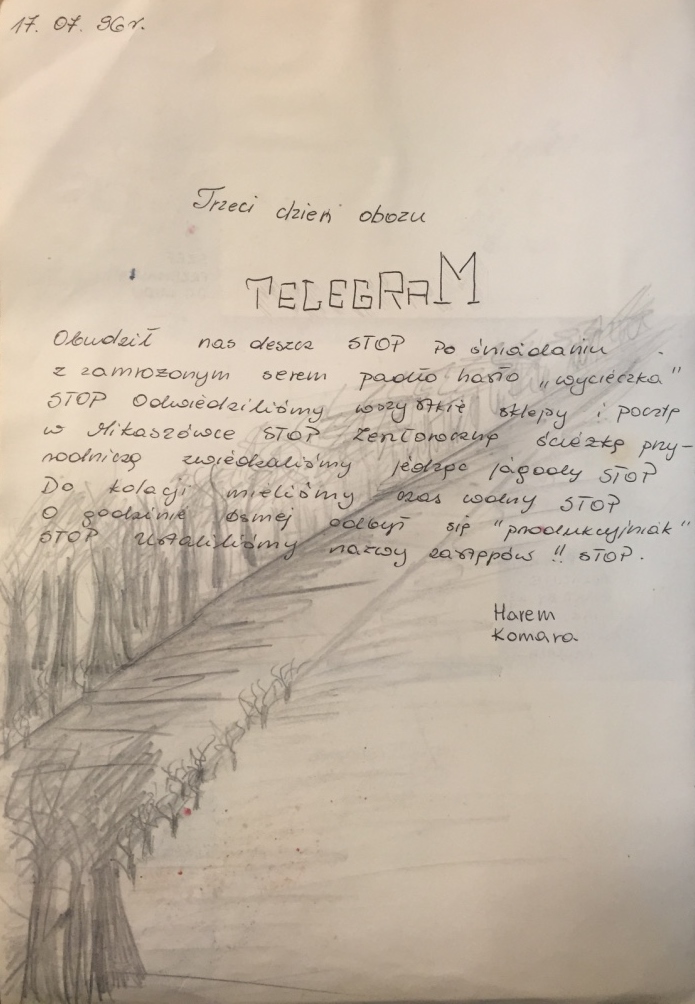 17. 07. 96r.
Trzeci dzień obozu
TELEGRAM
Obudził nas deszcz STOP Po śniadaniu
z zamrożonym serem padło hasło „wycieczka”
STOP Odwiedziliśmy wszystkie sklepy i pocztę
w Mikaszówce STOP Żenłoroczną ścieżkę przy-
rodniczą zwiedzaliśmy jedząc jagody STOP
Do kolacji mieliśmy czas wolny STOP
O godzinie ósmej odbył się "produkcyjniak"
STOP Ustaliliśmy nazwy zastępów !! STOP.
Harem
Komara